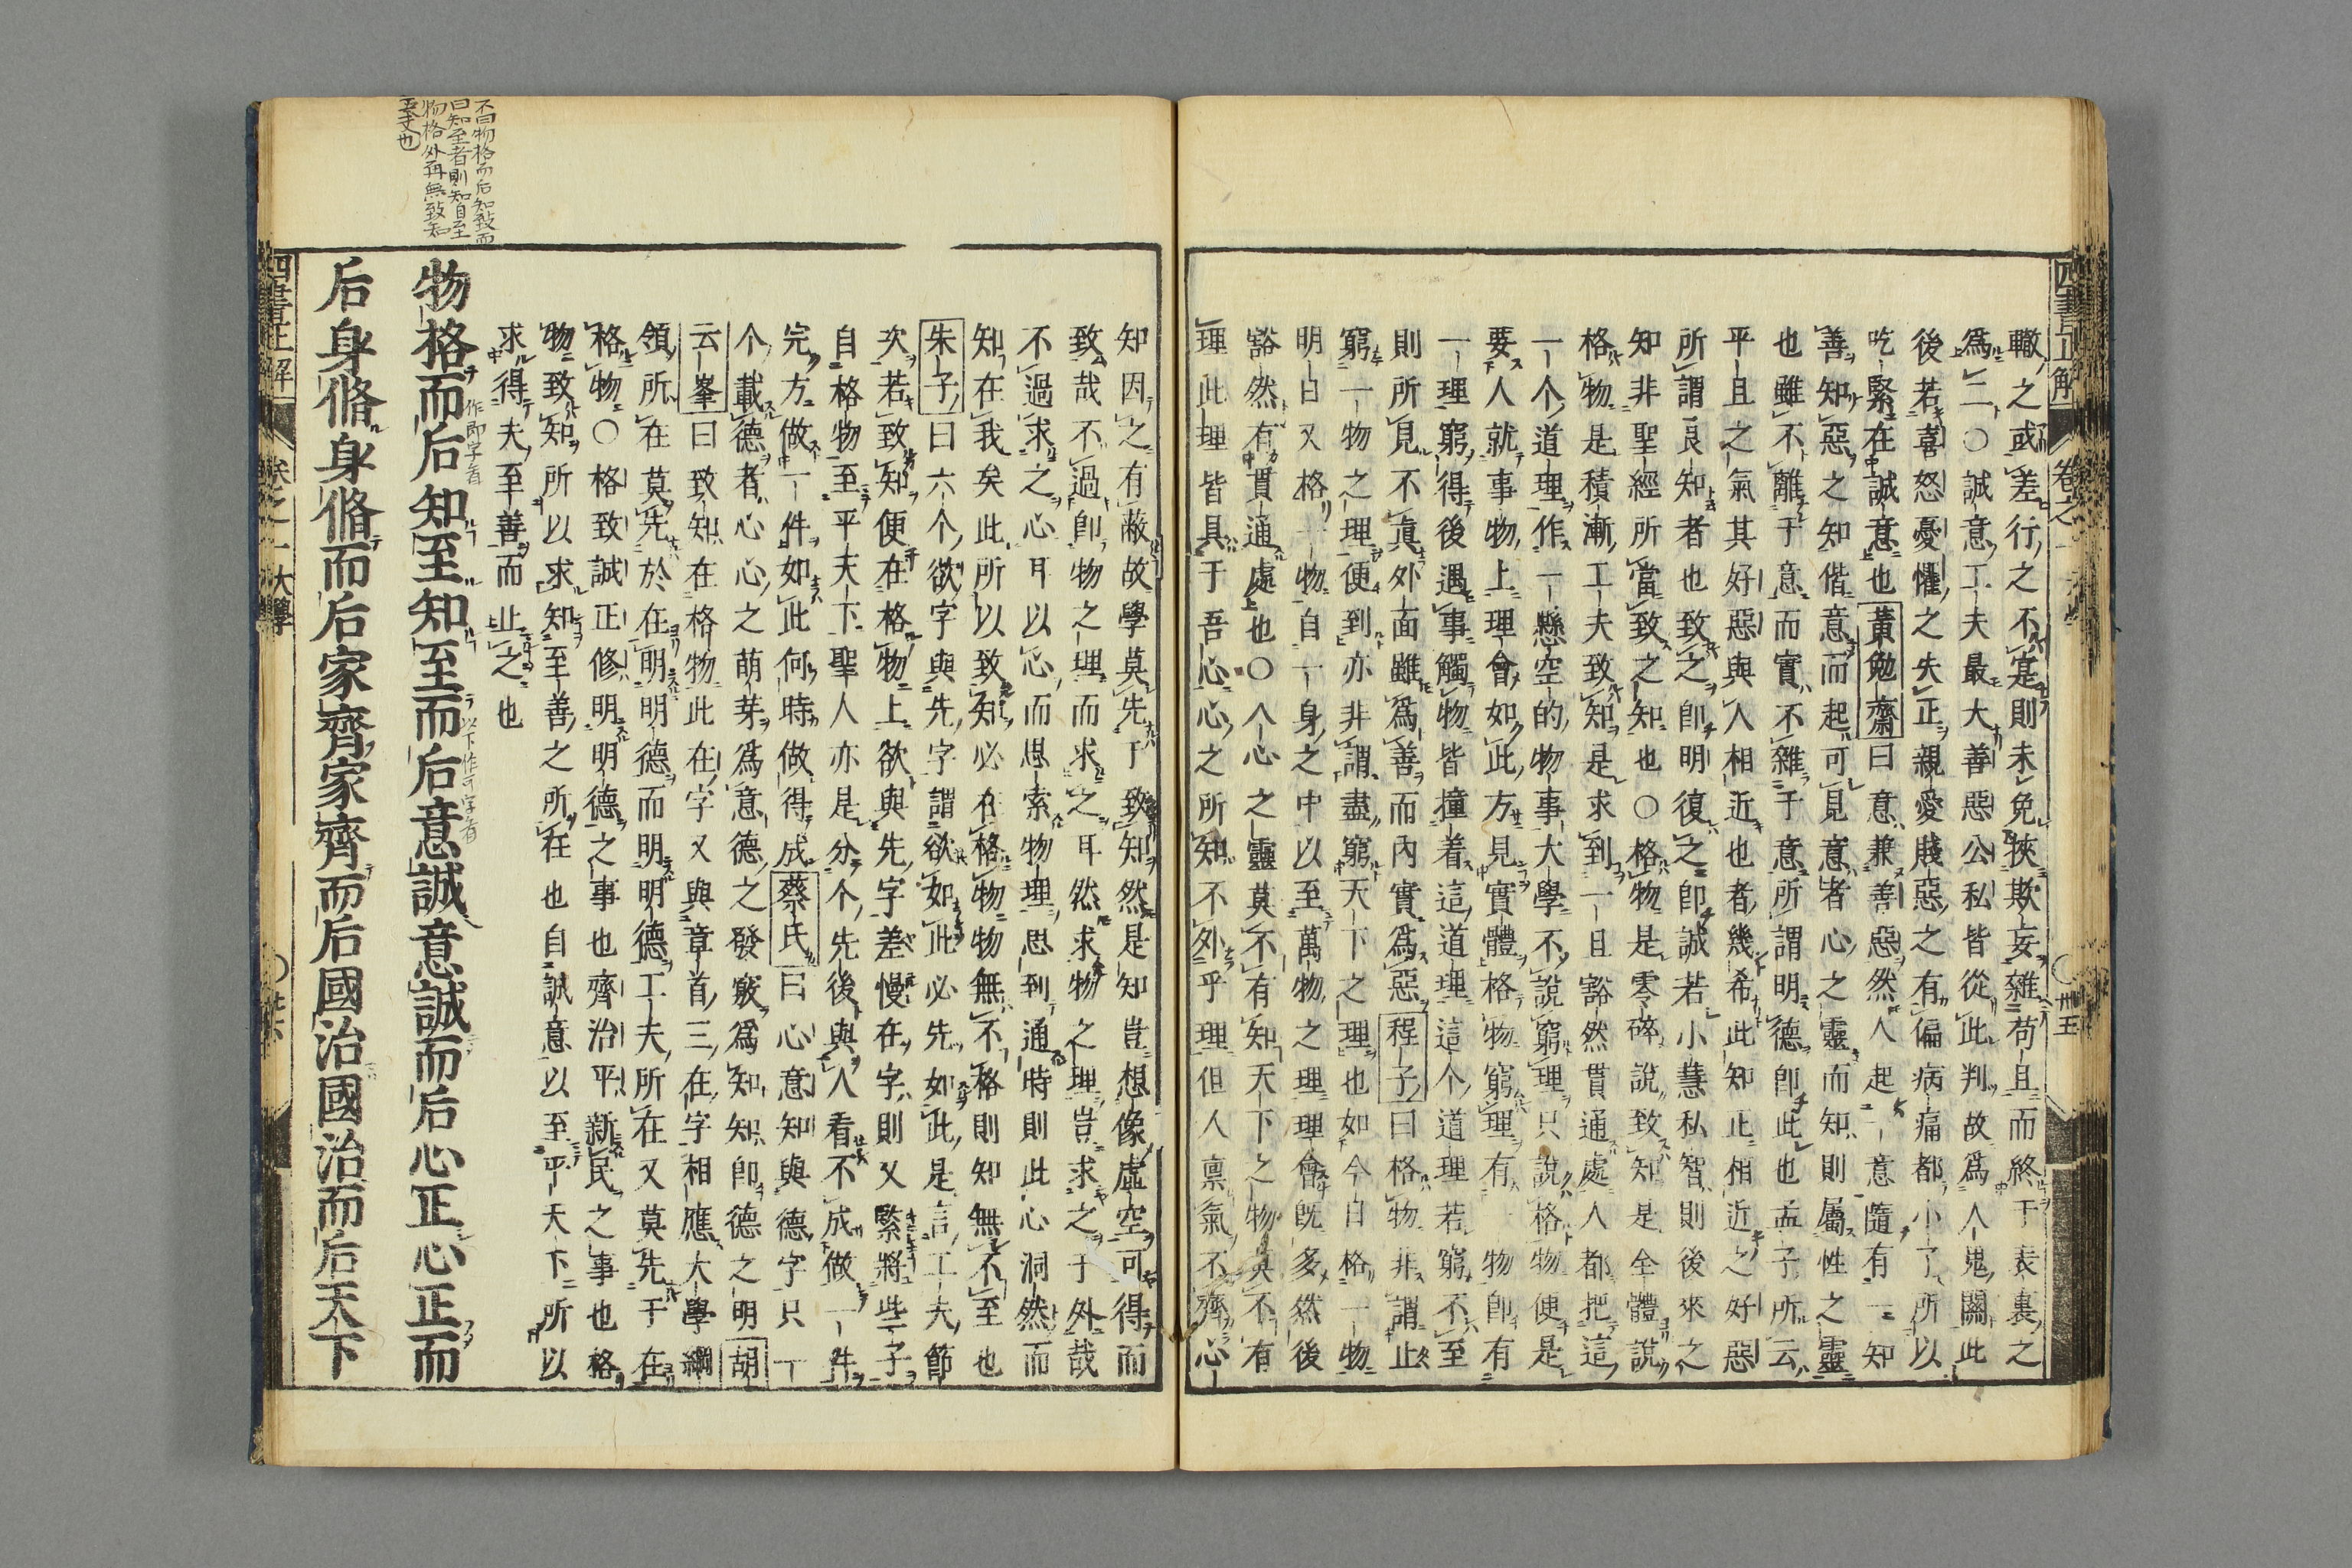 四書正解
卷之一
卅五
轍之或差行之不寔則未免挾欺妄雜苟且而終于表裏之
爲二○誠意工夫最大善惡公私皆從此判故爲人鬼關此
後若喜怒憂懼之失正親愛賤惡之有偏病痛都小了所以
吃緊在誠意也黄勉齋曰意兼善惡然人起一意隨有一知
善知惡之知偕意而起可見意者心之靈而知則屬性之靈
也雖不離于意而實不雜于意所謂明德卽此也孟子所云
平旦之氣其好惡與人相近也者幾希此知正相近之好惡
所謂良知者也致之卽明復之卽誠若小慧私智則後來之
知非聖經所當致之知也○格物是零碎說致知是全體說
格物是積漸工夫致知是求到一旦豁然貫通處人都把這
一个道理作一懸空的物事大學不說窮理只說格物便是
要人就事物上理會如此方見實體格物窮理有物卽有
一理窮得後遇事觸物皆撞着這道理這个道理若窮不至
則所見不眞外面雖爲善而內實爲惡程子曰格物非謂止
窮一物之理便到亦非謂盡窮天下之理也如今日格一物
明日又格一物自一身之中以至萬物之理理會旣多然後
豁然有貫通處也○人心之靈莫不有知天下之物莫不有
理此理皆具于吾心心之所知不外乎理但人禀氣不齊心
知因之有蔽故學莫先于致知然是知豈想像虛空可得而
致哉不過卽物之理而求之耳然求物之理豈求之于外哉
不過求之心耳以心而思索物理思到通時則此心洞然而
知在我矣此所以致知必在格物物無不格則知無不至也
朱子曰六个欲字與先字謂欲如此必先如此是言工夫節
次若致知便在格物上欲與先字差慢在字則又緊將些子
自格物至平天下聖人亦是分个先後與人看不成做一件
完方做一件如此何時做得成蔡氏曰心意知與德字只一
个載德者心心之萌芽爲意德之發竅爲知知卽德之明胡
云峯曰致知在格物此在字又與章首三在字相應大學綱
領所在莫先於在明明德而明明德工夫所在又莫先于在
格物○格致誠正修明明德之事也齊治平新民之事也格
物致知所以求知至善之所在也自誠意以至平天下所以
求得夫至善而止之也
物格而后知至知至而后意誠意誠而后心正心正而
后身脩身脩而后家齊家齊而后國治國治而后天下
作卽字看
以下作可字看
不曰物格而后知致而
曰知至者則知自至
物格外再無致知
工夫也
四書正解
卷之一大學